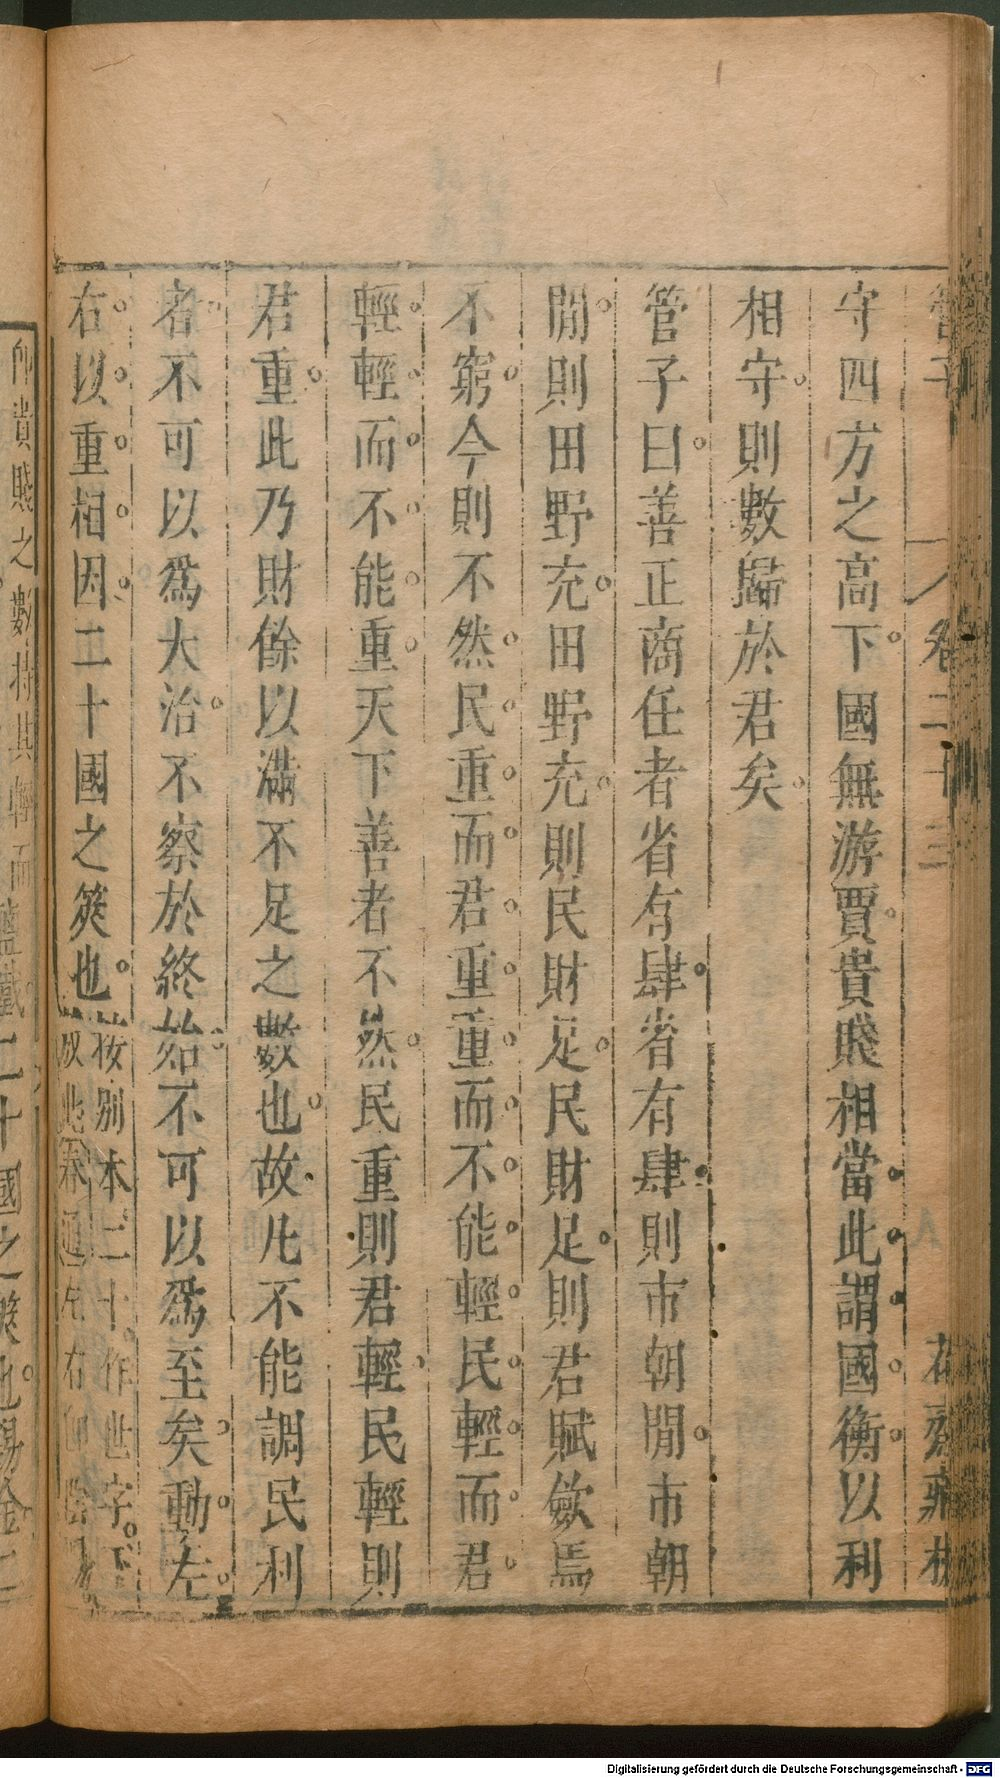 管子 卷二十三 花齋藏板
守四方之高下。國無游賈。貴賤相當。此謂國衡。以利
相守。則數歸於君矣。
管子曰。善正商任者省有肆。省有肆。則市朝閒。市朝
閒。則田野充。田野充。則民財足。民財足。則君賦斂焉
不窮。今則不然。民重而君重。重而不能輕。民輕而君
輕。輕而不能重。天下善者不然。民重則君輕。民輕則
君重。此乃財餘以滿不足之數也。故凡不能調民利
者。不可以爲大治。不察於終始。不可以爲至矣。動左
右。以重相因。二十國之筴也。
按別本二十作世字。
貴賤之數持其輕而
二十國之筴也
Digitalisierung gefördert durch die Deutsche Forschungsgemeinschaft - DFG